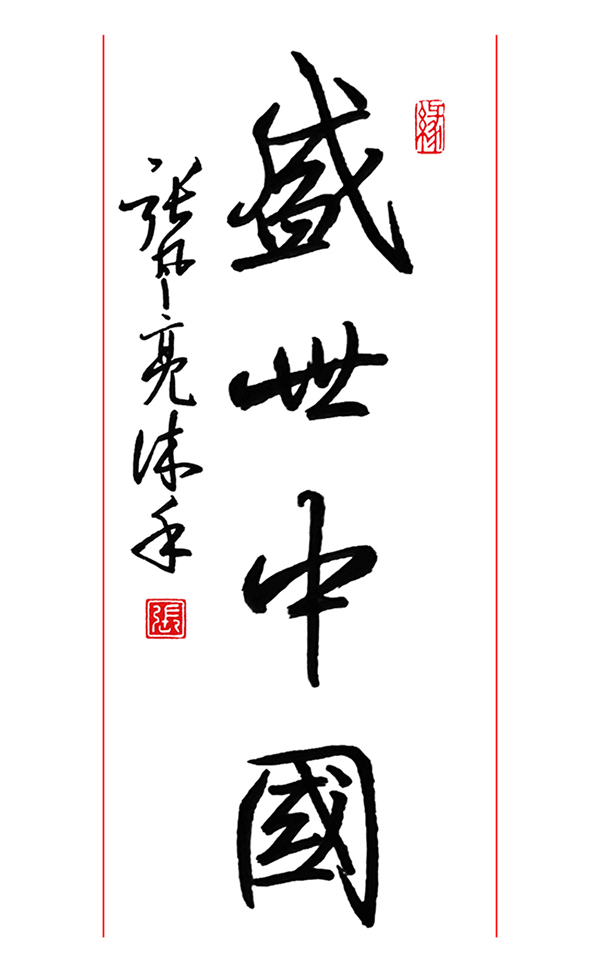 緣
盛世中國
張亮沐手
張